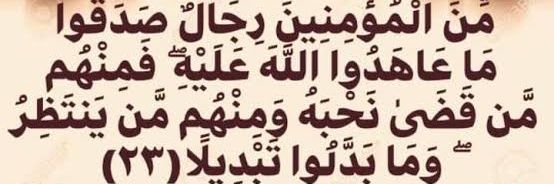 مِّنَ الْمُؤْمِنِينَ رِجَالٌ صَدَقُوا
مَا عَاهَدُوا اللَّهَ عَلَيْهِ ۖ فَمِنْهُم
مَّن قَضَىٰ نَحْبَهُ وَمِنْهُم مَّن يَنتَظِرُ
ۖ وَمَا بَدَّلُوا تَبْدِيلًا (٢٣)